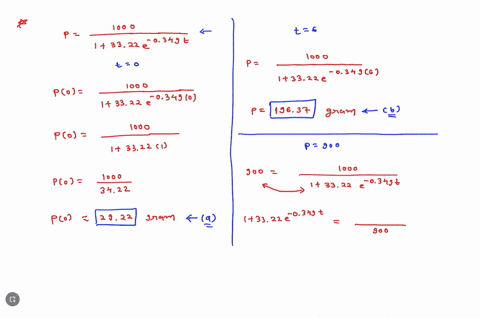 P = 1000 / (1 + 33.22 e^-0.349t) ←
t = 0
P(0) = 1000 / (1 + 33.22 e^-0.349(0))
P(0) = 1000 / (1 + 33.22 (1))
P(0) = 1000 / 34.22
P(0) = 29.22 gram ← (a)
t = 6
P = 1000 / (1 + 33.22 e^-0.349(0))
P = 196.37 gram ← (b)
P = 900
900 = 1000 / (1 + 33.22 e^-0.349t)
1 + 33.22 e^-0.349t = / 900